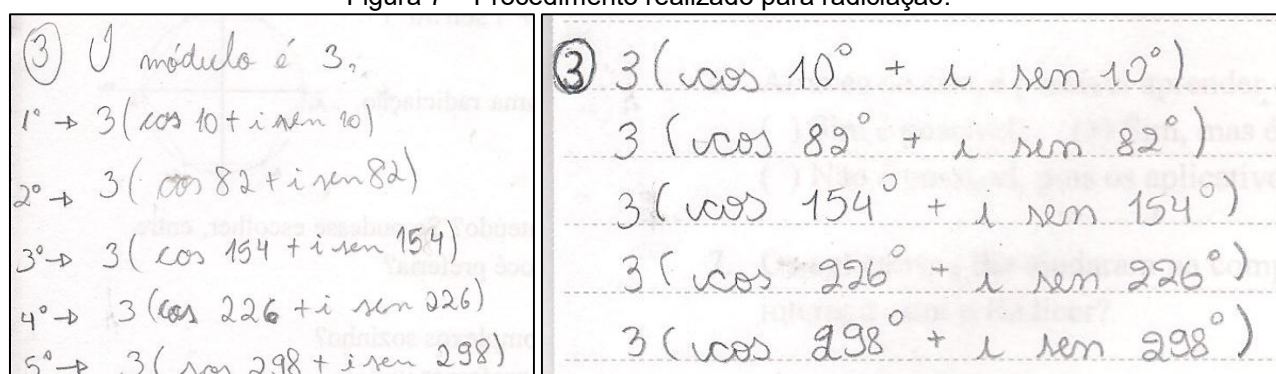 Figura 7 – Procedimento realizado para radiciação.
③ O módulo é 3.
1° → 3(cos 10 + i sen 10)
2° → 3(cos 82 + i sen 82)
3° → 3(cos 154 + i sen 154)
4° → 3(cos 226 + i sen 226)
5° → 3(cos 298 + i sen 298)
③ 3(cos 10° + i sen 10°)
3(cos 82° + i sen 82°)
3(cos 154° + i sen 154°)
3(cos 226° + i sen 226°)
3(cos 298° + i sen 298°)